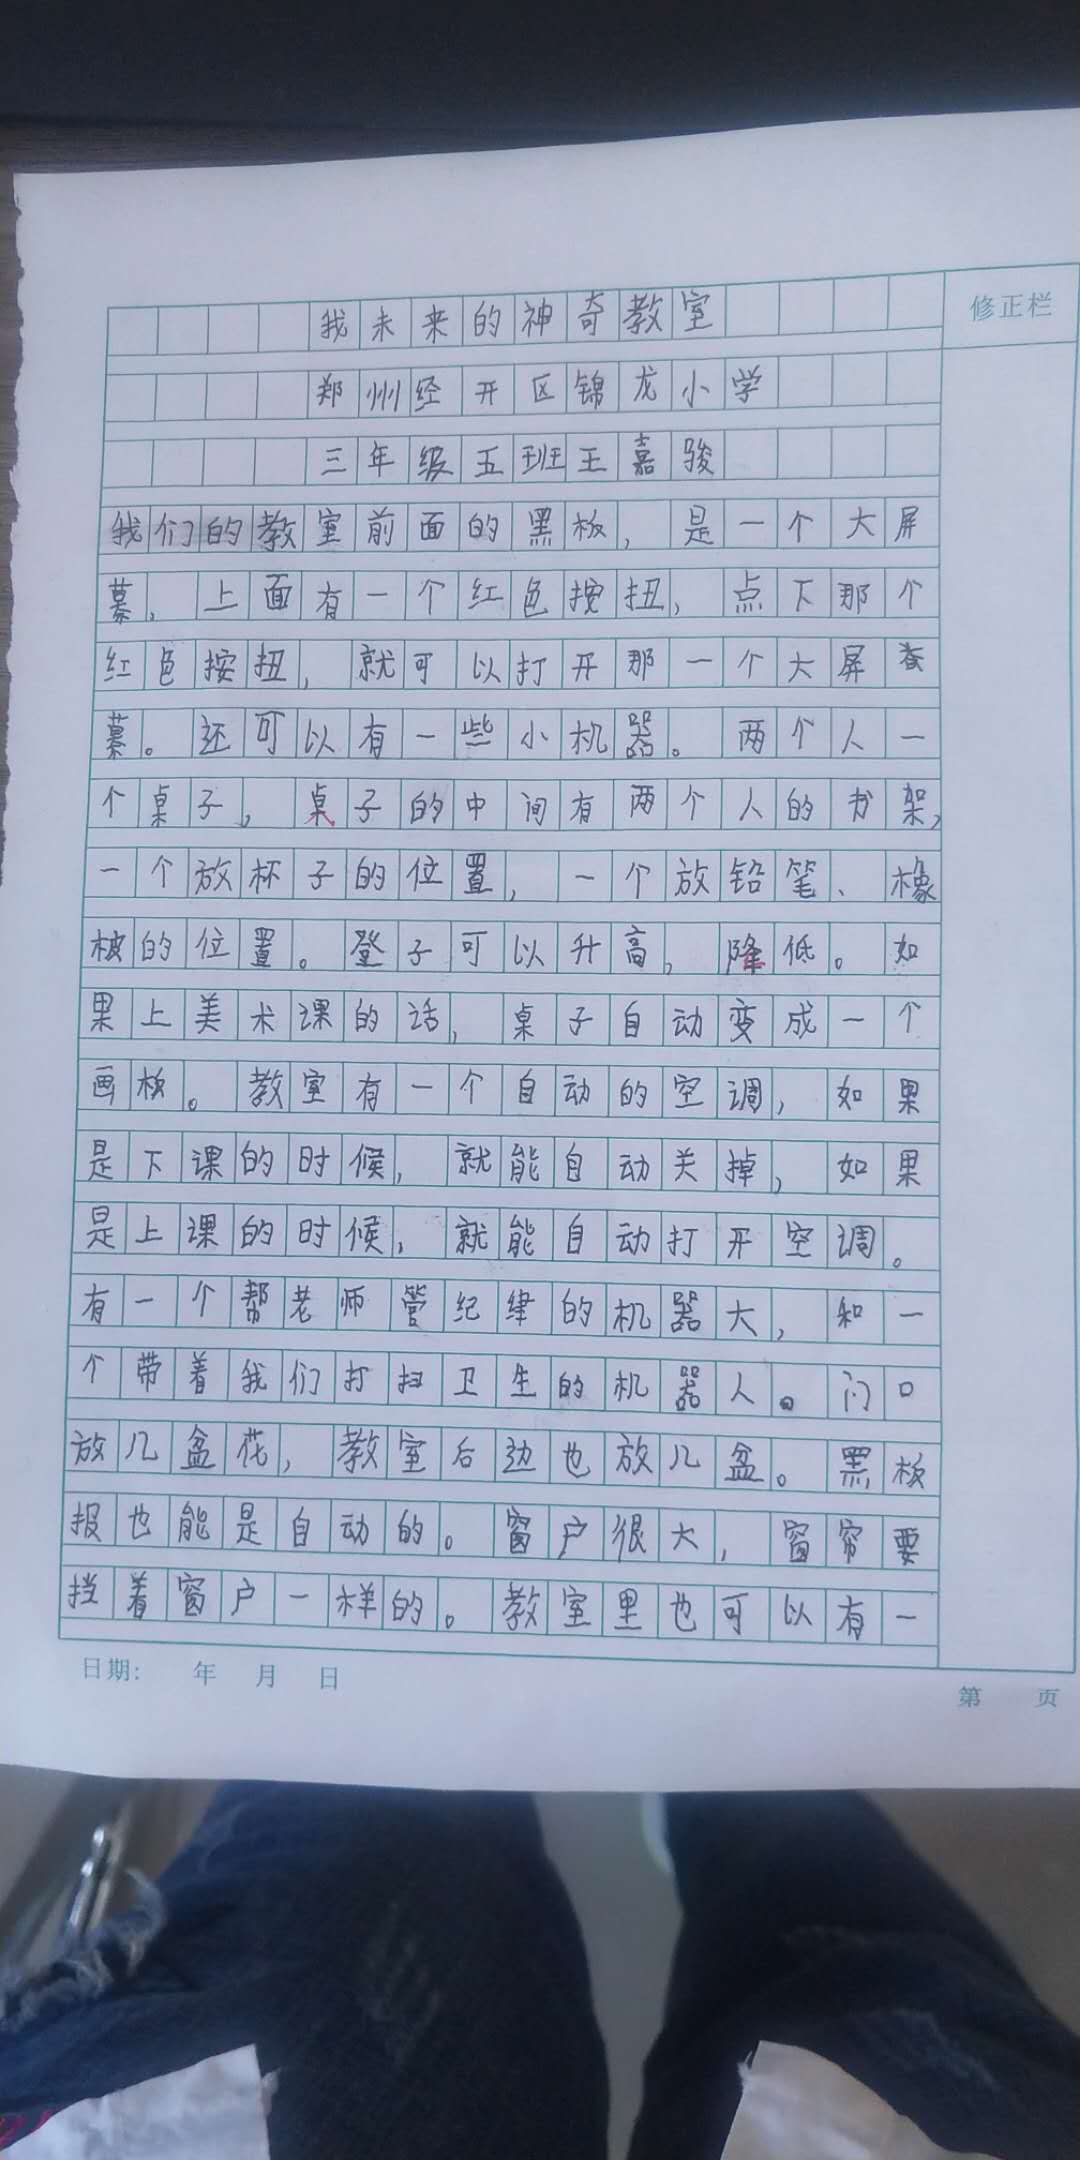 我未来的神奇教室
修正栏
郑州经开区锦龙小学
三年级五班王嘉骏
我们的教室前面的黑板，是一个大屏
幕，上面有一个红色按扭，点下那个
红色按扭，就可以打开那一个大屏
幕。还可以有一些小机器。两个人一
个桌子，桌子的中间有两个人的书架，
一个放杯子的位置，一个放铅笔、橡
皮的位置。登子可以升高，降低。如
果上美术课的话，桌子自动变成一个
画板。教室有一个自动的空调，如果
是下课的时候，就能自动关掉，如果
是上课的时候，就能自动打开空调。
有一个帮老师管纪律的机器大，和一
个带着我们打扫卫生的机器人。门口
放几盆花，教室后边也放几盆。黑板
报也能是自动的。窗户很大，窗帘要
挡着窗户一样的。教室里也可以有一
日期： 年 月 日
第 页